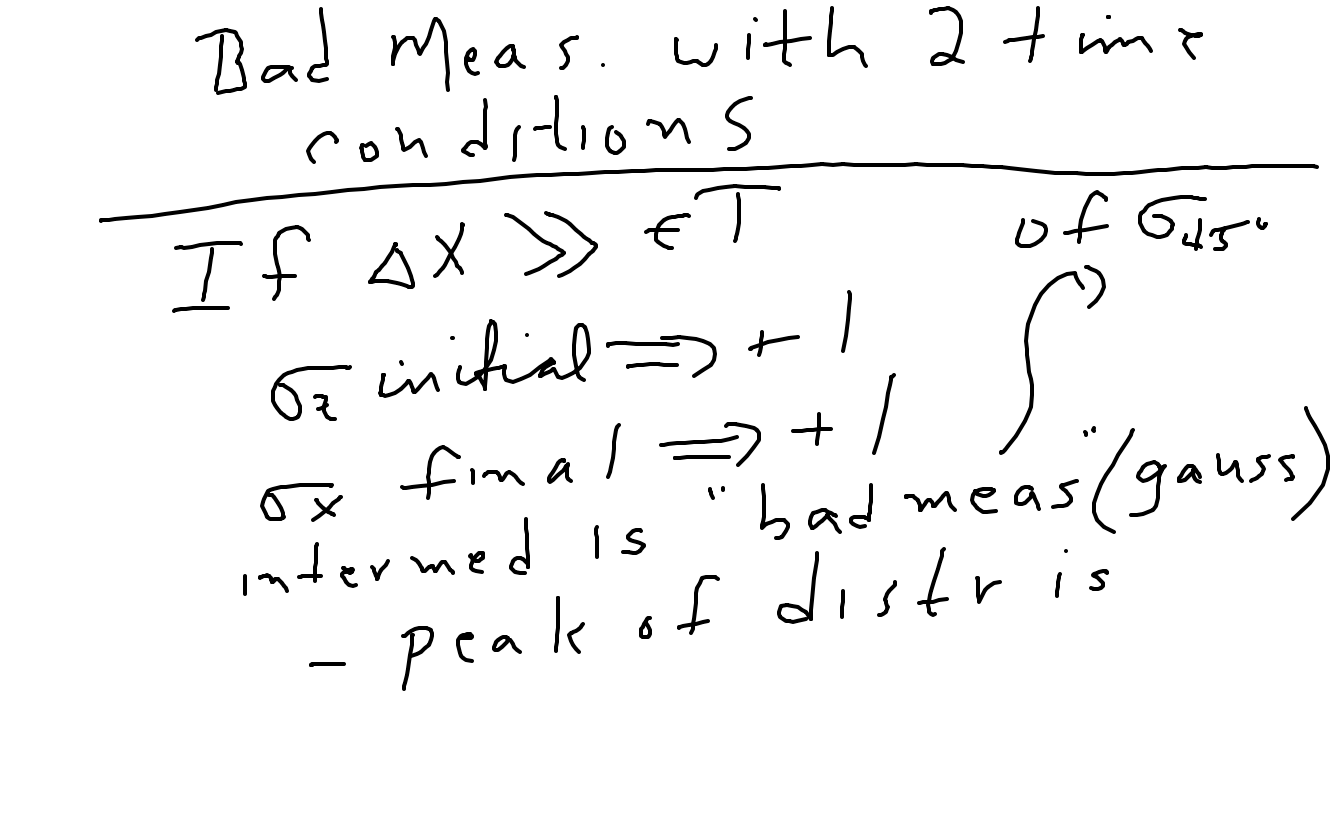 Bad Meas. with 2 time
conditions
If Δx >> εT
of σ45°
σz initial ⇒ +1
σx final ⇒ +1
intermed is "bad meas" (gauss)
- peak of distr is